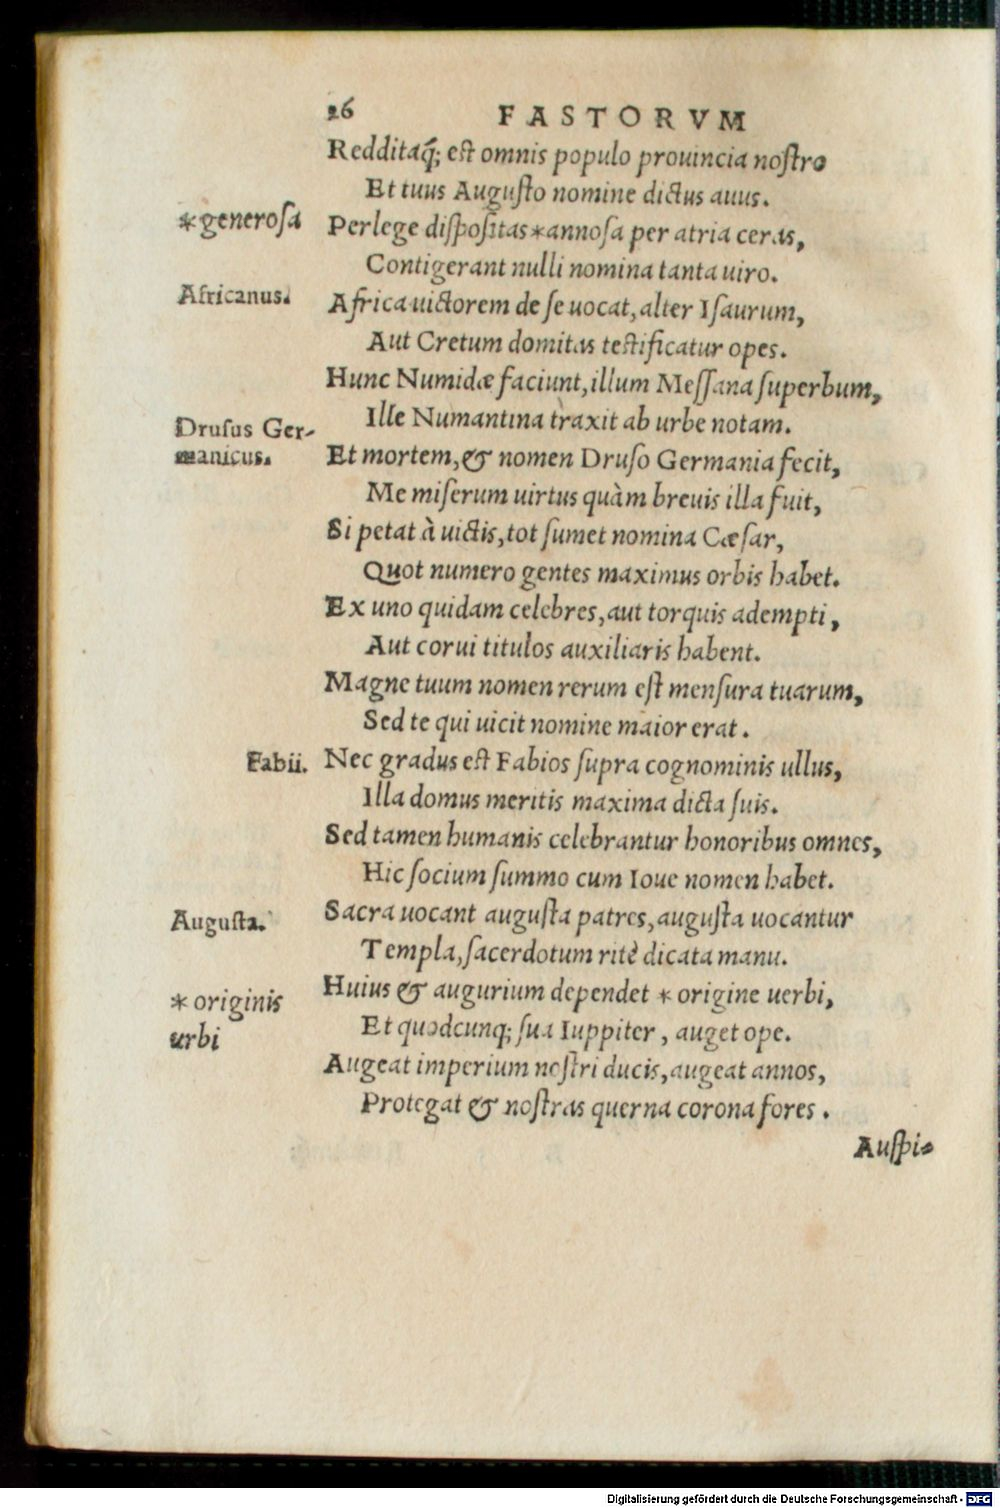 26 FASTORVM
Redditaq́; est omnis populo prouincia nostro
Et tuus Augusto nomine dictus auus.
*generosa
Perlege dispositas*annosa per atria ceras,
Contigerant nulli nomina tanta uiro.
Africanus.
Africa uictorem de se uocat, alter Isaurum,
Aut Cretum domitas testificatur opes.
Hunc Numidæ faciunt, illum Messana superbum,
Ille Numantina traxit ab urbe notam.
Drusus Ger-
manicus.
Et mortem, & nomen Druso Germania fecit,
Me miserum uirtus quàm breuis illa fuit,
Si petat à uictis, tot sumet nomina Cæsar,
Quot numero gentes maximus orbis habet.
Ex uno quidam celebres, aut torquis adempti,
Aut corui titulos auxiliaris habent.
Magne tuum nomen rerum est mensura tuarum,
Sed te qui uicit nomine maior erat.
Fabii.
Nec gradus est Fabios supra cognominis ullus,
Illa domus meritis maxima dicta suis.
Sed tamen humanis celebrantur honoribus omnes,
Hic socium summo cum Ioue nomen habet.
Augusta.
Sacra uocant augusta patres, augusta uocantur
Templa, sacerdotum ritè dicata manu.
*originis
urbi
Huius & augurium dependet * origine uerbi,
Et quodcunq; sua Iuppiter, auget ope.
Augeat imperium nostri ducis, augeat annos,
Protegat & nostras querna corona fores.
Auspi-
Digitalisierung gefördert durch die Deutsche Forschungsgemeinschaft - DFG